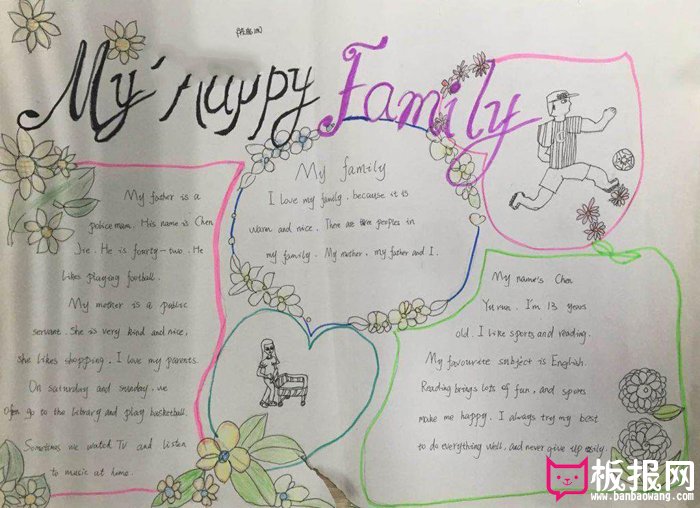 My Happy Family
My father is a
policeman. His name is Chen
Jie. He is fourty-two. He
likes playing football.
My mother is a public
servant. She is very kind and nice,
she likes shopping. I love my parents.
On saturday and sunday, we
often go to the library and play basketball.
Sometimes we watch TV and listen
to music at home.
My family
I love my family, because it is
warm and nice. There are three peoples in
my family. My mother, my father and I.
My name's Chen
Yu run. I'm 13 years
old. I like sports and reading.
My favourite subject is English.
Reading brings lots of fun, and sports
make me happy. I always try my best
to do everything well, and never give up easily.
板报网
www.banbaowang.com